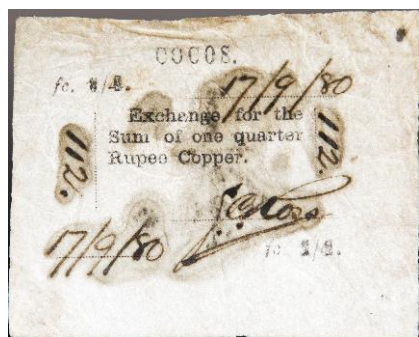 COCOS.
fc. 1/4. 17/9/80
Exchange for the
Sum of one quarter
Rupee Copper.
112.
112.
17/9/80
fc 1/4.